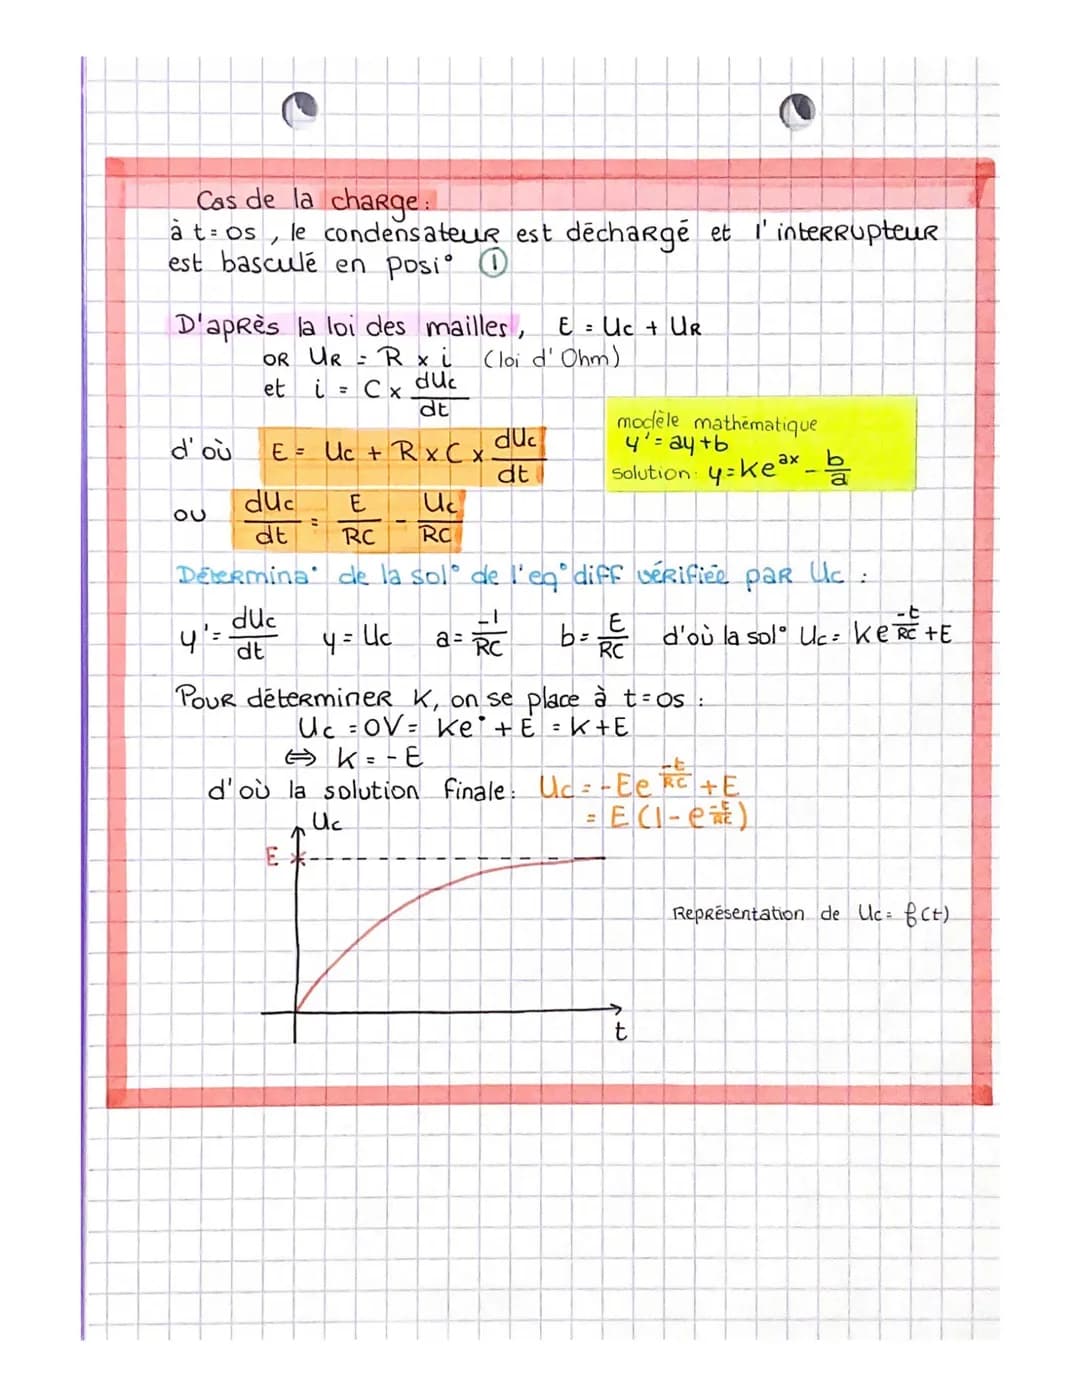 Cas de la charge :
à t = 0s , le condensateur est déchargé et l'interrupteur
est basculé en posi° ①
D'après la loi des mailles , E = Uc + UR
OR UR = R x i (loi d'Ohm)
et i = C x dUc/dt
modèle mathématique
y' = ay + b
solution : y = Ke^ax - b/a
d'où E = Uc + R x C x dUc/dt
ou dUc/dt = E/RC - Uc/RC
Détermina° de la sol° de l'eq° diff vérifiée par Uc :
y' = dUc/dt y = Uc a = -1/RC b = E/RC d'où la sol° Uc = Ke^(-t/RC) + E
Pour déterminer K, on se place à t = 0s :
Uc = 0V = Ke° + E = K + E
⇔ K = - E
d'où la solution finale : Uc = - Ee^(-t/RC) + E
= E (1 - e^(-t/RC))
Uc
E
Représentation de Uc = f(t)
t